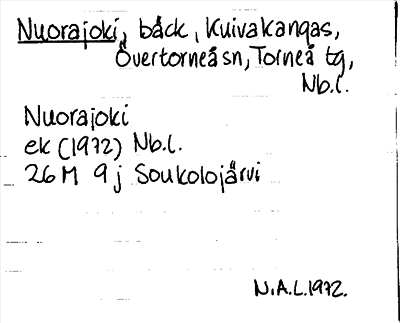 Nuorajoki, bäck, Kuivakangas,
Övertorneå sn, Torneå tg,
Nb.l.
Nuorajoki
ek (1972) Nb.l.
26 M 9 j Soukolojärvi
N.A.L. 1972.